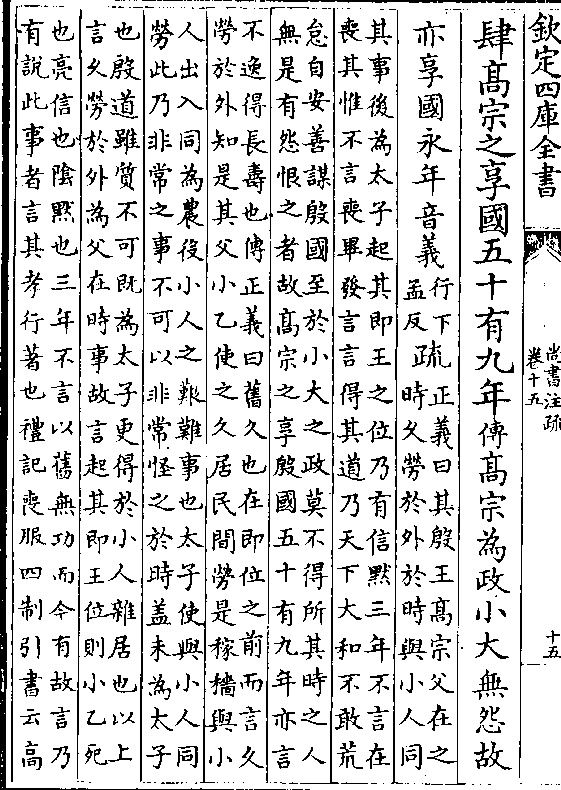 欽定四庫全書
尚書注疏
卷十五
十五
肆髙宗之享國五十有九年傳髙宗為政小大無怨故
亦享國永年音義行下
孟反疏正義曰其殷王髙宗父在之
時久勞於外於時與小人同
其事後為太子起其即王之位乃有信默三年不言在
喪其惟不言喪畢發言言得其道乃天下大和不敢荒
怠自安善謀殷國至於小大之政莫不得所其時之人
無是有怨恨之者故髙宗之享殷國五十有九年亦言
不逸得長壽也傳正義曰舊久也在即位之前而言久
勞於外知是其父小乙使之久居民間勞是稼穡與小
人出入同為農役小人之艱難事也太子使與小人同
勞此乃非常之事不可以非常怪之於時蓋未為太子
也殷道雖質不可既為太子更得於小人雜居也以上
言久勞於外為父在時事故言起其即王位則小乙死
也亮信也陰黙也三年不言以舊無功而今有故言乃
有說此事者言其孝行著也禮記喪服四制引書云髙